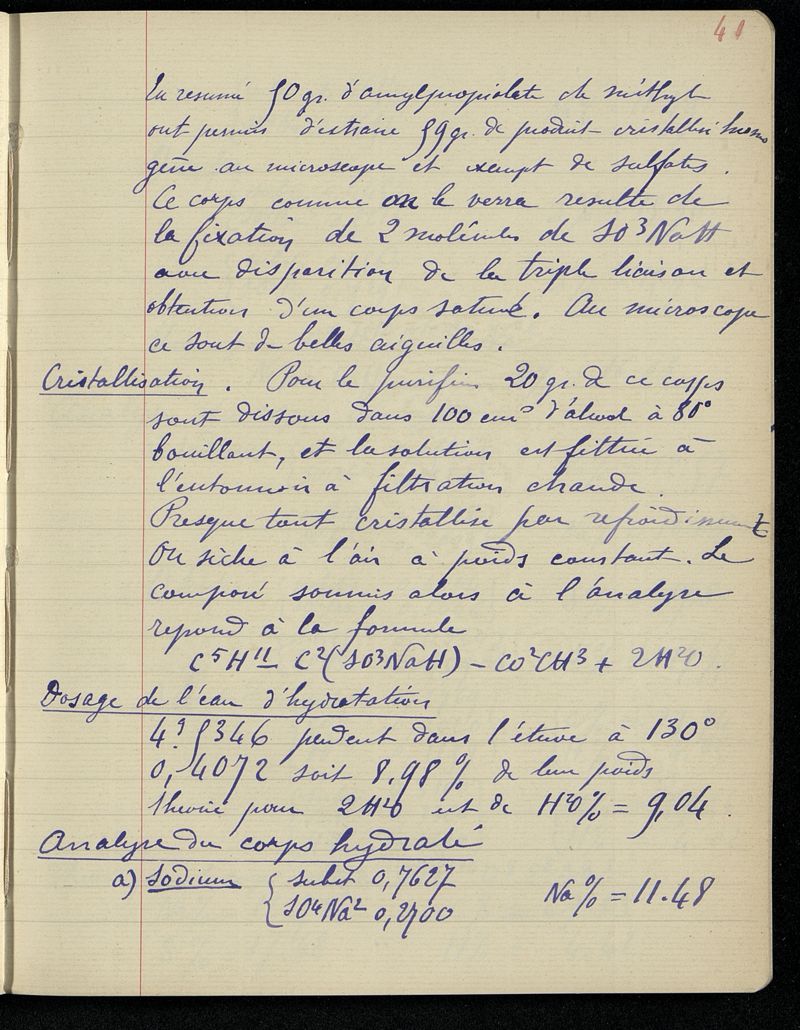 41
En resumé 50 gr. d'amylpropiolate de méthyle
ont permis d'extraire 59 gr. de produit cristallisé homo
gène au microscope et exempt de sulfates.
Ce corps comme on le verra resulte de
la fixation de 2 molécules de SO³NaH
avec disparition de la triple liaison et
obtention d'un corps saturé. Au microscope
ce sont de belles aiguilles.
Cristallisation. Pour le purifier 20 gr. de ce corps
sont dissous dans 100 cm³ d'alcool à 80°
bouillant, et la solution est filtrée à
l'entonnoir à filtration chaude.
Presque tout cristallise par refroidissement
On sèche à l'air à poids constant. Le
composé soumis alors à l'analyse
repond à la formule
C⁵H¹¹ - C²(SO³NaH) - CO²CH³ + 2H²O.
Dosage de l'eau d'hydratation
4,5346 perdent dans l'étuve à 130°
0,4072 soit 8,98 % de leur poids
theorie pour 2H²O est de H²O% = 9,04.
Analyse du corps hydraté
a) Sodium { subst 0,7627 Na % = 11.48
{ SO⁴Na² 0,2700